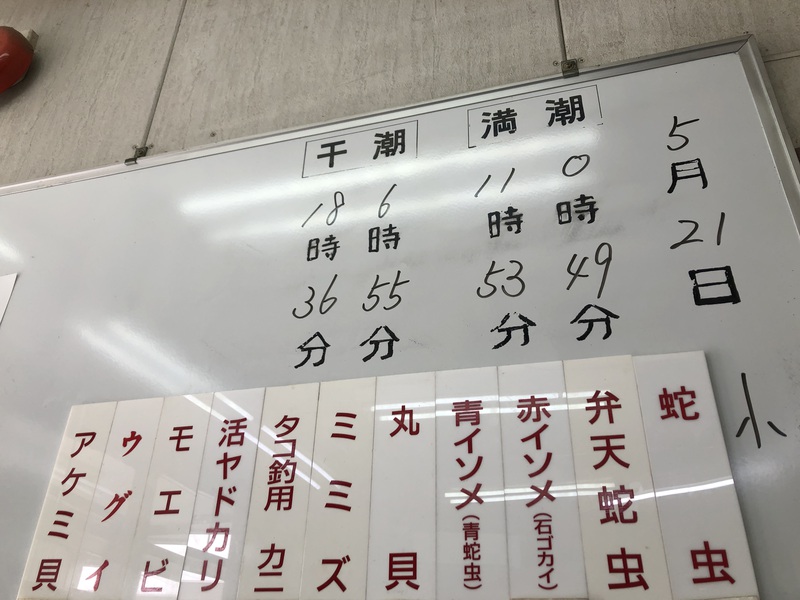 5月21日
小
満潮
0時49分
11時53分
干潮
6時55分
18時36分
蛇虫
弁天蛇虫
赤イソメ(石ゴカイ)
青イソメ(青蛇虫)
丸貝
ミミズ
タコ釣用カニ
活ヤドカリ
モエビ
ウグイ
アケミ貝